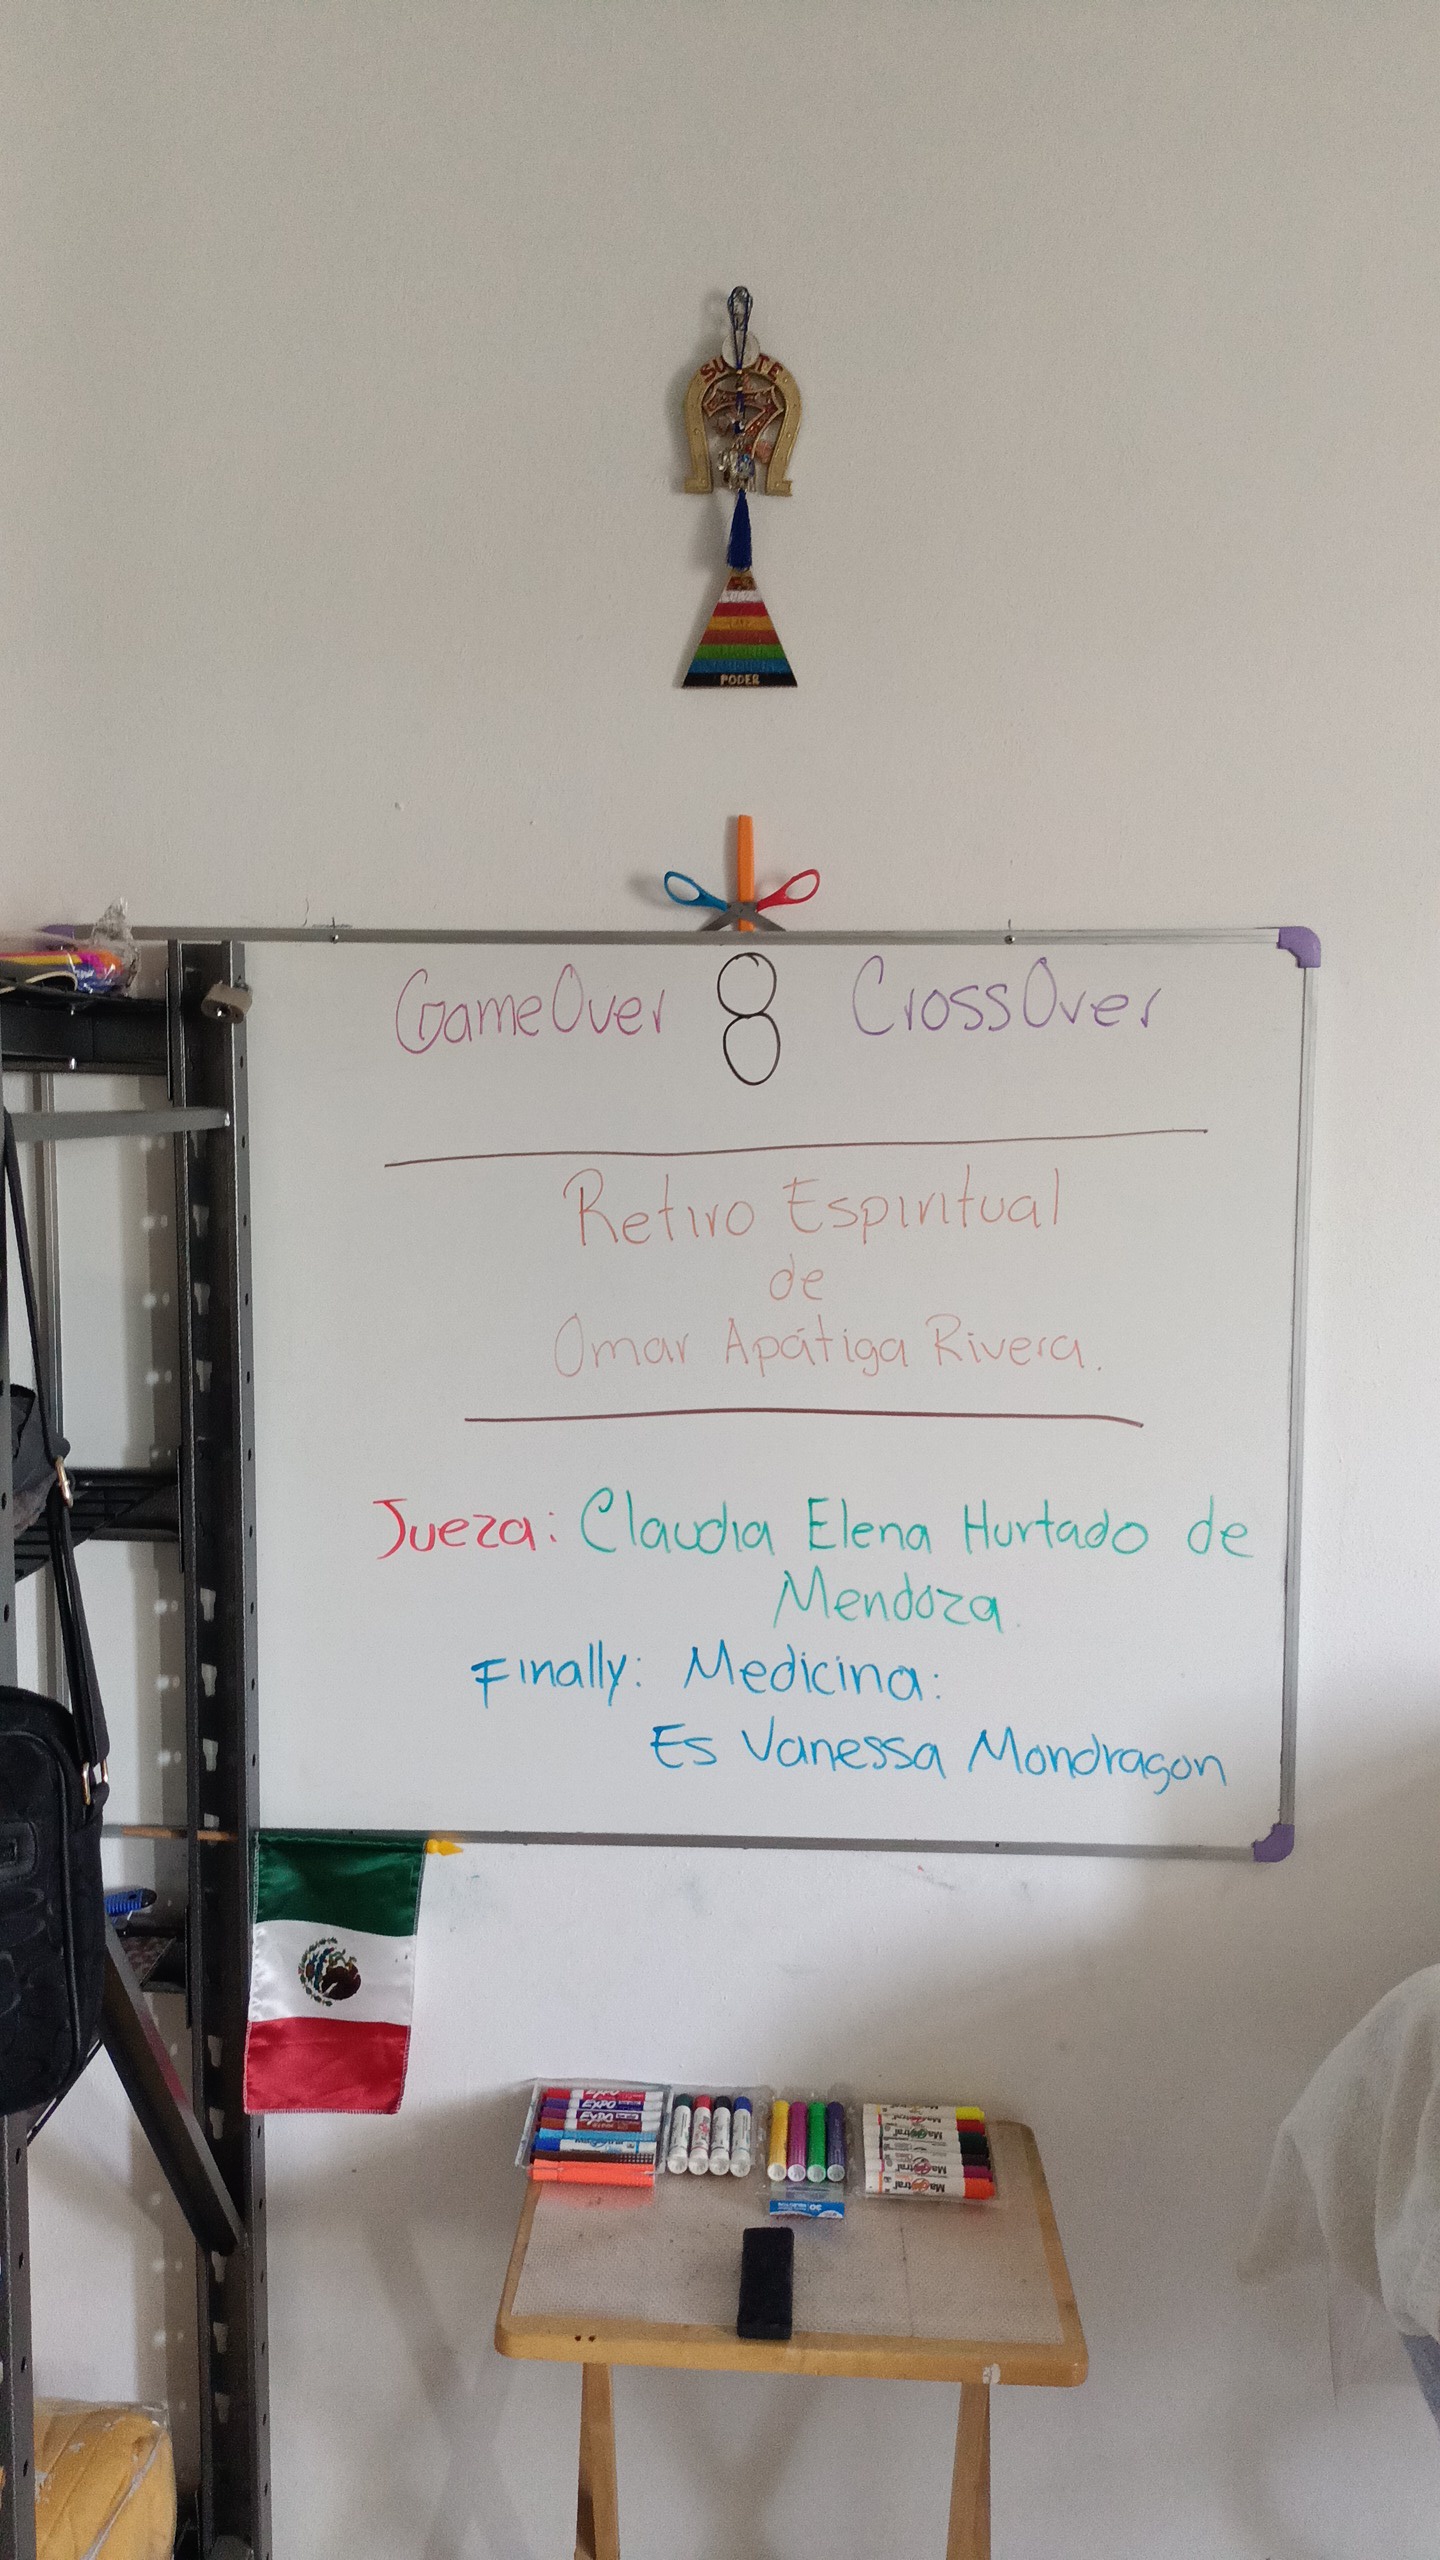 SU TE
7
PODER
GameOver 8 CrossOver
Retiro Espiritual
de
Omar Apátiga Rivera.
Jueza: Claudia Elena Hurtado de
Mendoza.
Finally: Medicina:
Es Vanessa Mondragon
EXPO
EXPO
EXPO
Magistral
Magistral
Magistral